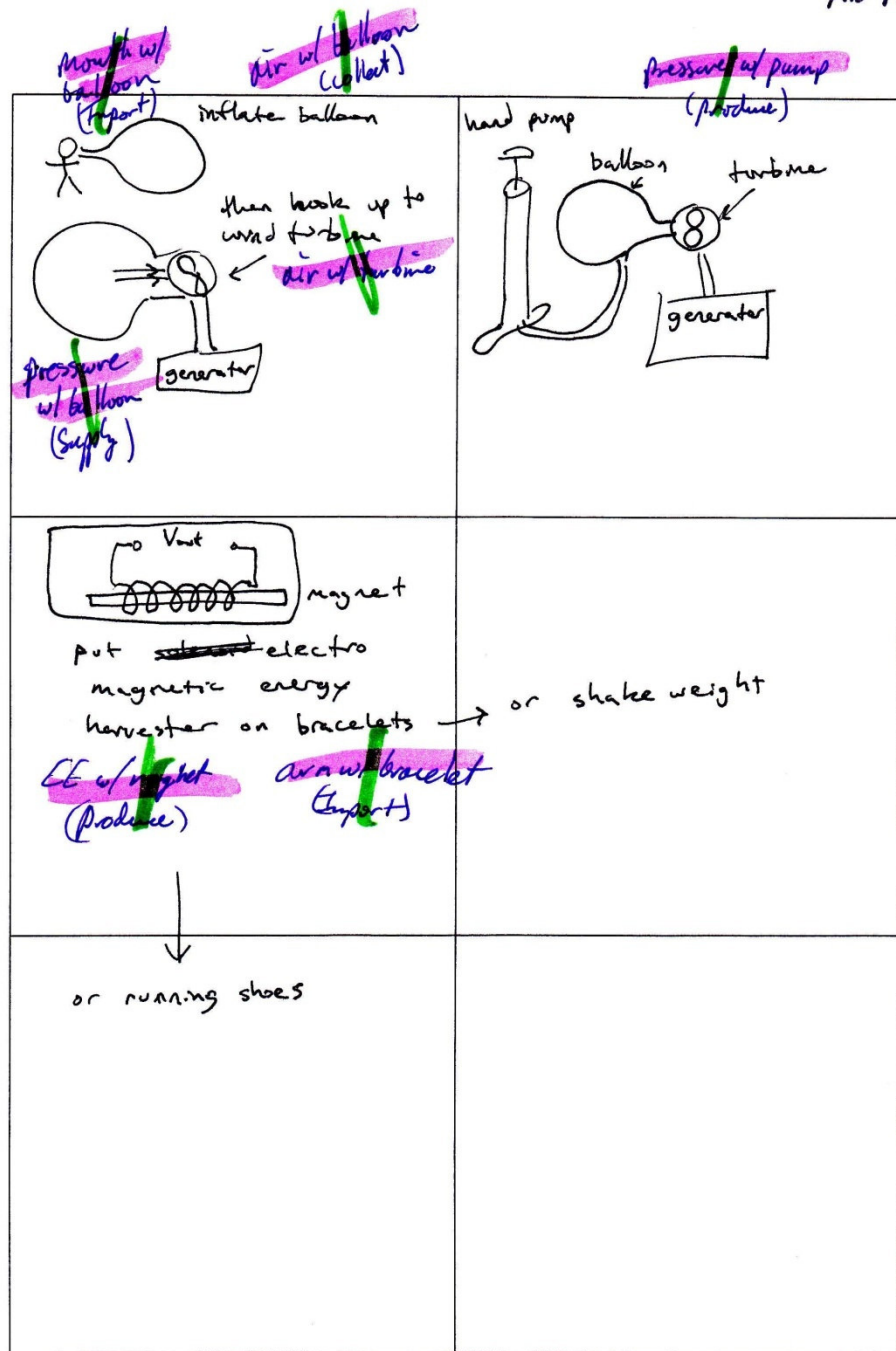 Mouth w/
balloon
(Import)
air w/ balloon
(collect)
pressure w/ pump
(produce)
inflate balloon
then hook up to
wind turbine
air w/ turbine
pressure
w/ balloon
(Supply)
generator
hand pump
balloon
turbine
generator
Vout
magnet
put electro
magnetic energy
harvester on bracelets → or shake weight
EE w/ magnet
(Produce)
arm w/ bracelet
(Import)
or running shoes